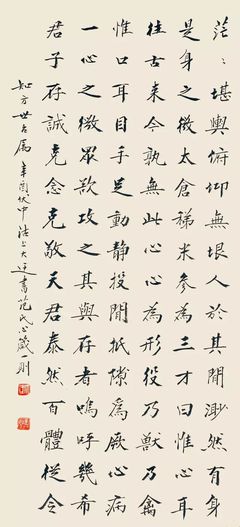 茫〻堪輿俯仰無垠人於其間渺然有身
是身之微太倉稊米參為三才曰惟心耳
往古來今孰無此心心為形役乃獸乃禽
惟口耳目手足動靜投間抵隙爲厥心病
一心之微眾欲攻之其與存者嗚呼幾希
君子存誠克念克敬天君泰然百體從令
知方世台属 辛酉伏中 上大 書范氏心箴一則